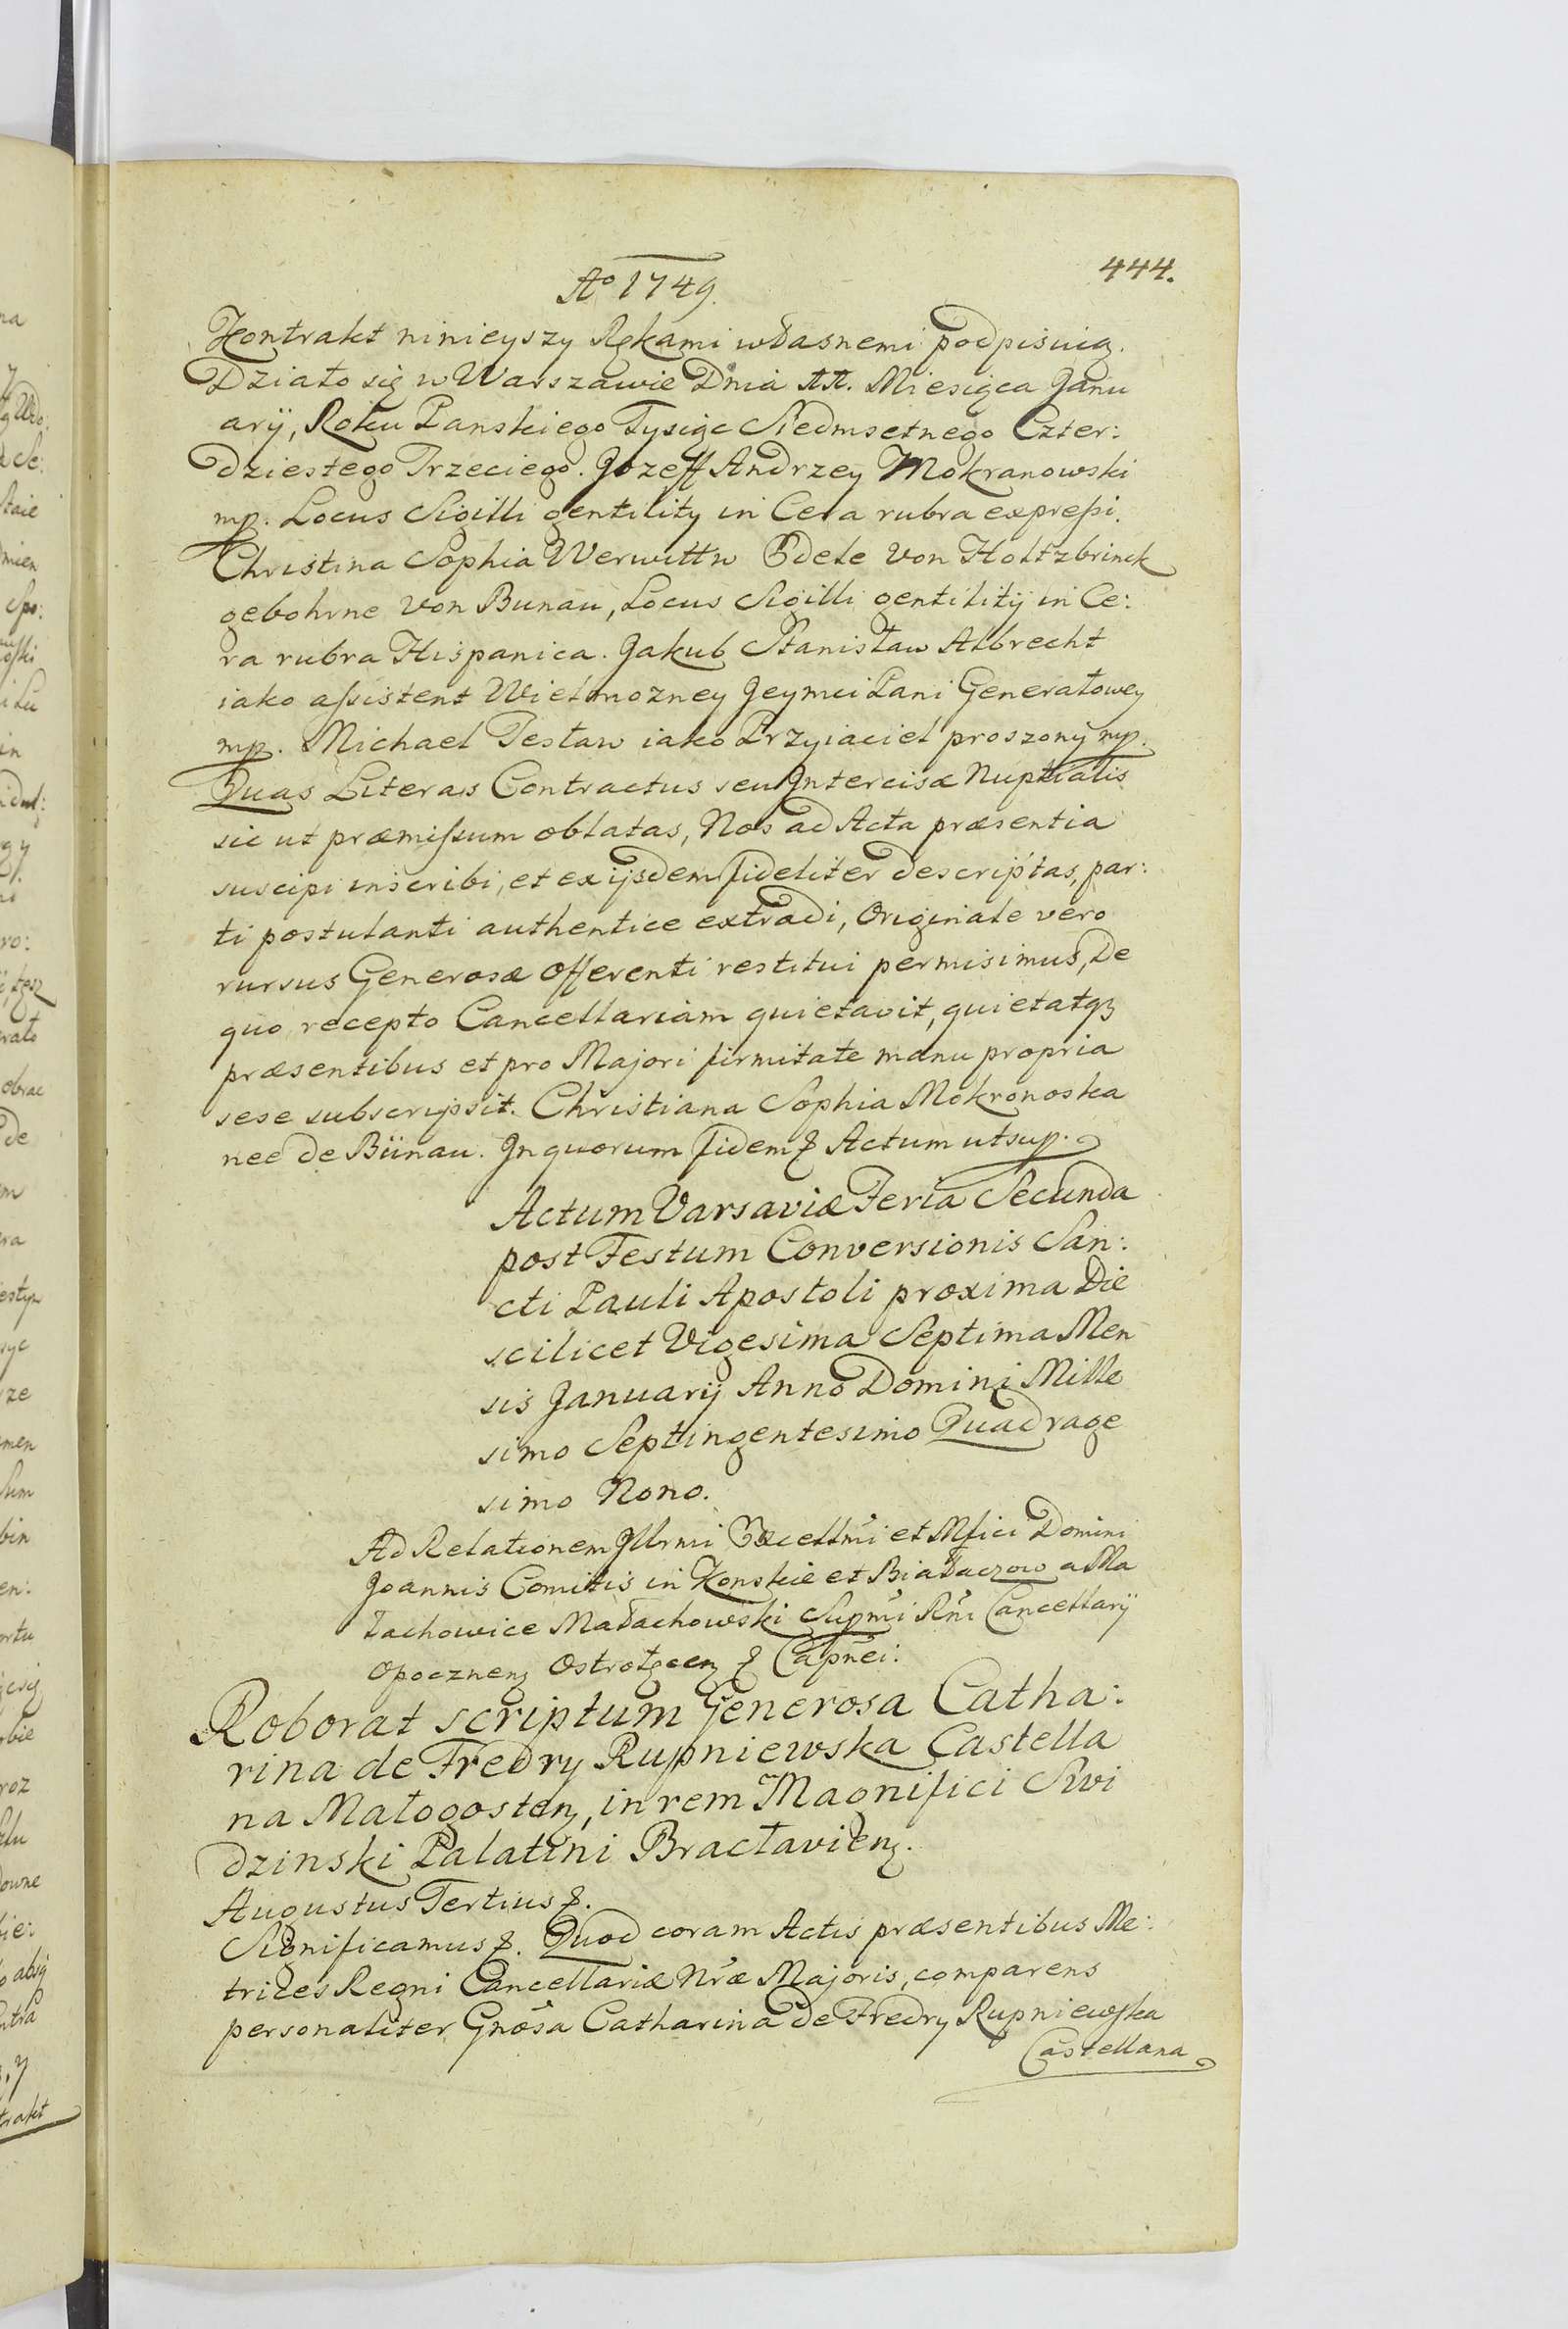 444.
Aº 1749.
Kontrakt ninieyszy Rękami własnemi podpisuią.
Działo się w Warszawie Dnia Miesiąca Janu
arÿ, Roku Panskiego Tysiąc Siedmsetnego Czter:
dziestego Trzeciego. Jozeff Andrzey Mokranowski
mp. Locus Sigilli gentility in Cera rubra expreſsi.
Christina Sophia Werwittw Edele von Holtzbrinck
gebohrne von Bunau, Locus Sigilli gentilitÿ in Ce:
ra rubra Hispanica. Jakub Stanisław Albrecht
iako aſsistent Wielmozney Jeymci Pani Generałowey
mp. Michael Testaw iako Przyiaciel proszony mp.
Quas Literas Contractus seu Intercisæ Nuptialis
sic ut præmiſsum oblatas, Nos ad Acta præsentia
suscipi inscribi, et ex ijsdem fideliter descriptas, par:
ti postulanti authentice extradi, Originale vero
rursus Generosæ Offerenti restitui permisimus, De
quo recepto Cancellariam quietavit, quietatqꝫ
præsentibus et pro Majori firmitate manu propria
sese subscripsit. Christiana Sophia Mokronoska
nee de Bünau. In quorum fidem & Actum ut sup.
Actum Varsaviæ Feria Secunda
post Festum Conversionis San:
cti Pauli Apostoli proxima Die
scilicet Vigesima Septima Men
sis Januarij Anno Domini Mille
simo Septingentesimo Quadrage
simo Nono.
Ad Relationem Illrmi Excellmi et Mfici Domini
Joannis Comitis in Konskie et Białaczow a Ma
łachowice Małachowski Supmi Rni Cancellarÿ
Opocznenꝫ Ostrołęcenꝫ & Capnei.
Roborat scriptum Generosa Catha:
rina de Fredry Rupniewska Castella
na Małogostenꝫ, in rem Magnifici Swi
dzinski Palatini Bracłavienꝫ.
Augustus Tertius &.
Significamus &. Quod coram Actis præsentibus Me:
trices Regni Cancellariæ Nræ Majoris, comparens
personaliter Gnosa Catharina de Fredry Rupniewska
Castellana